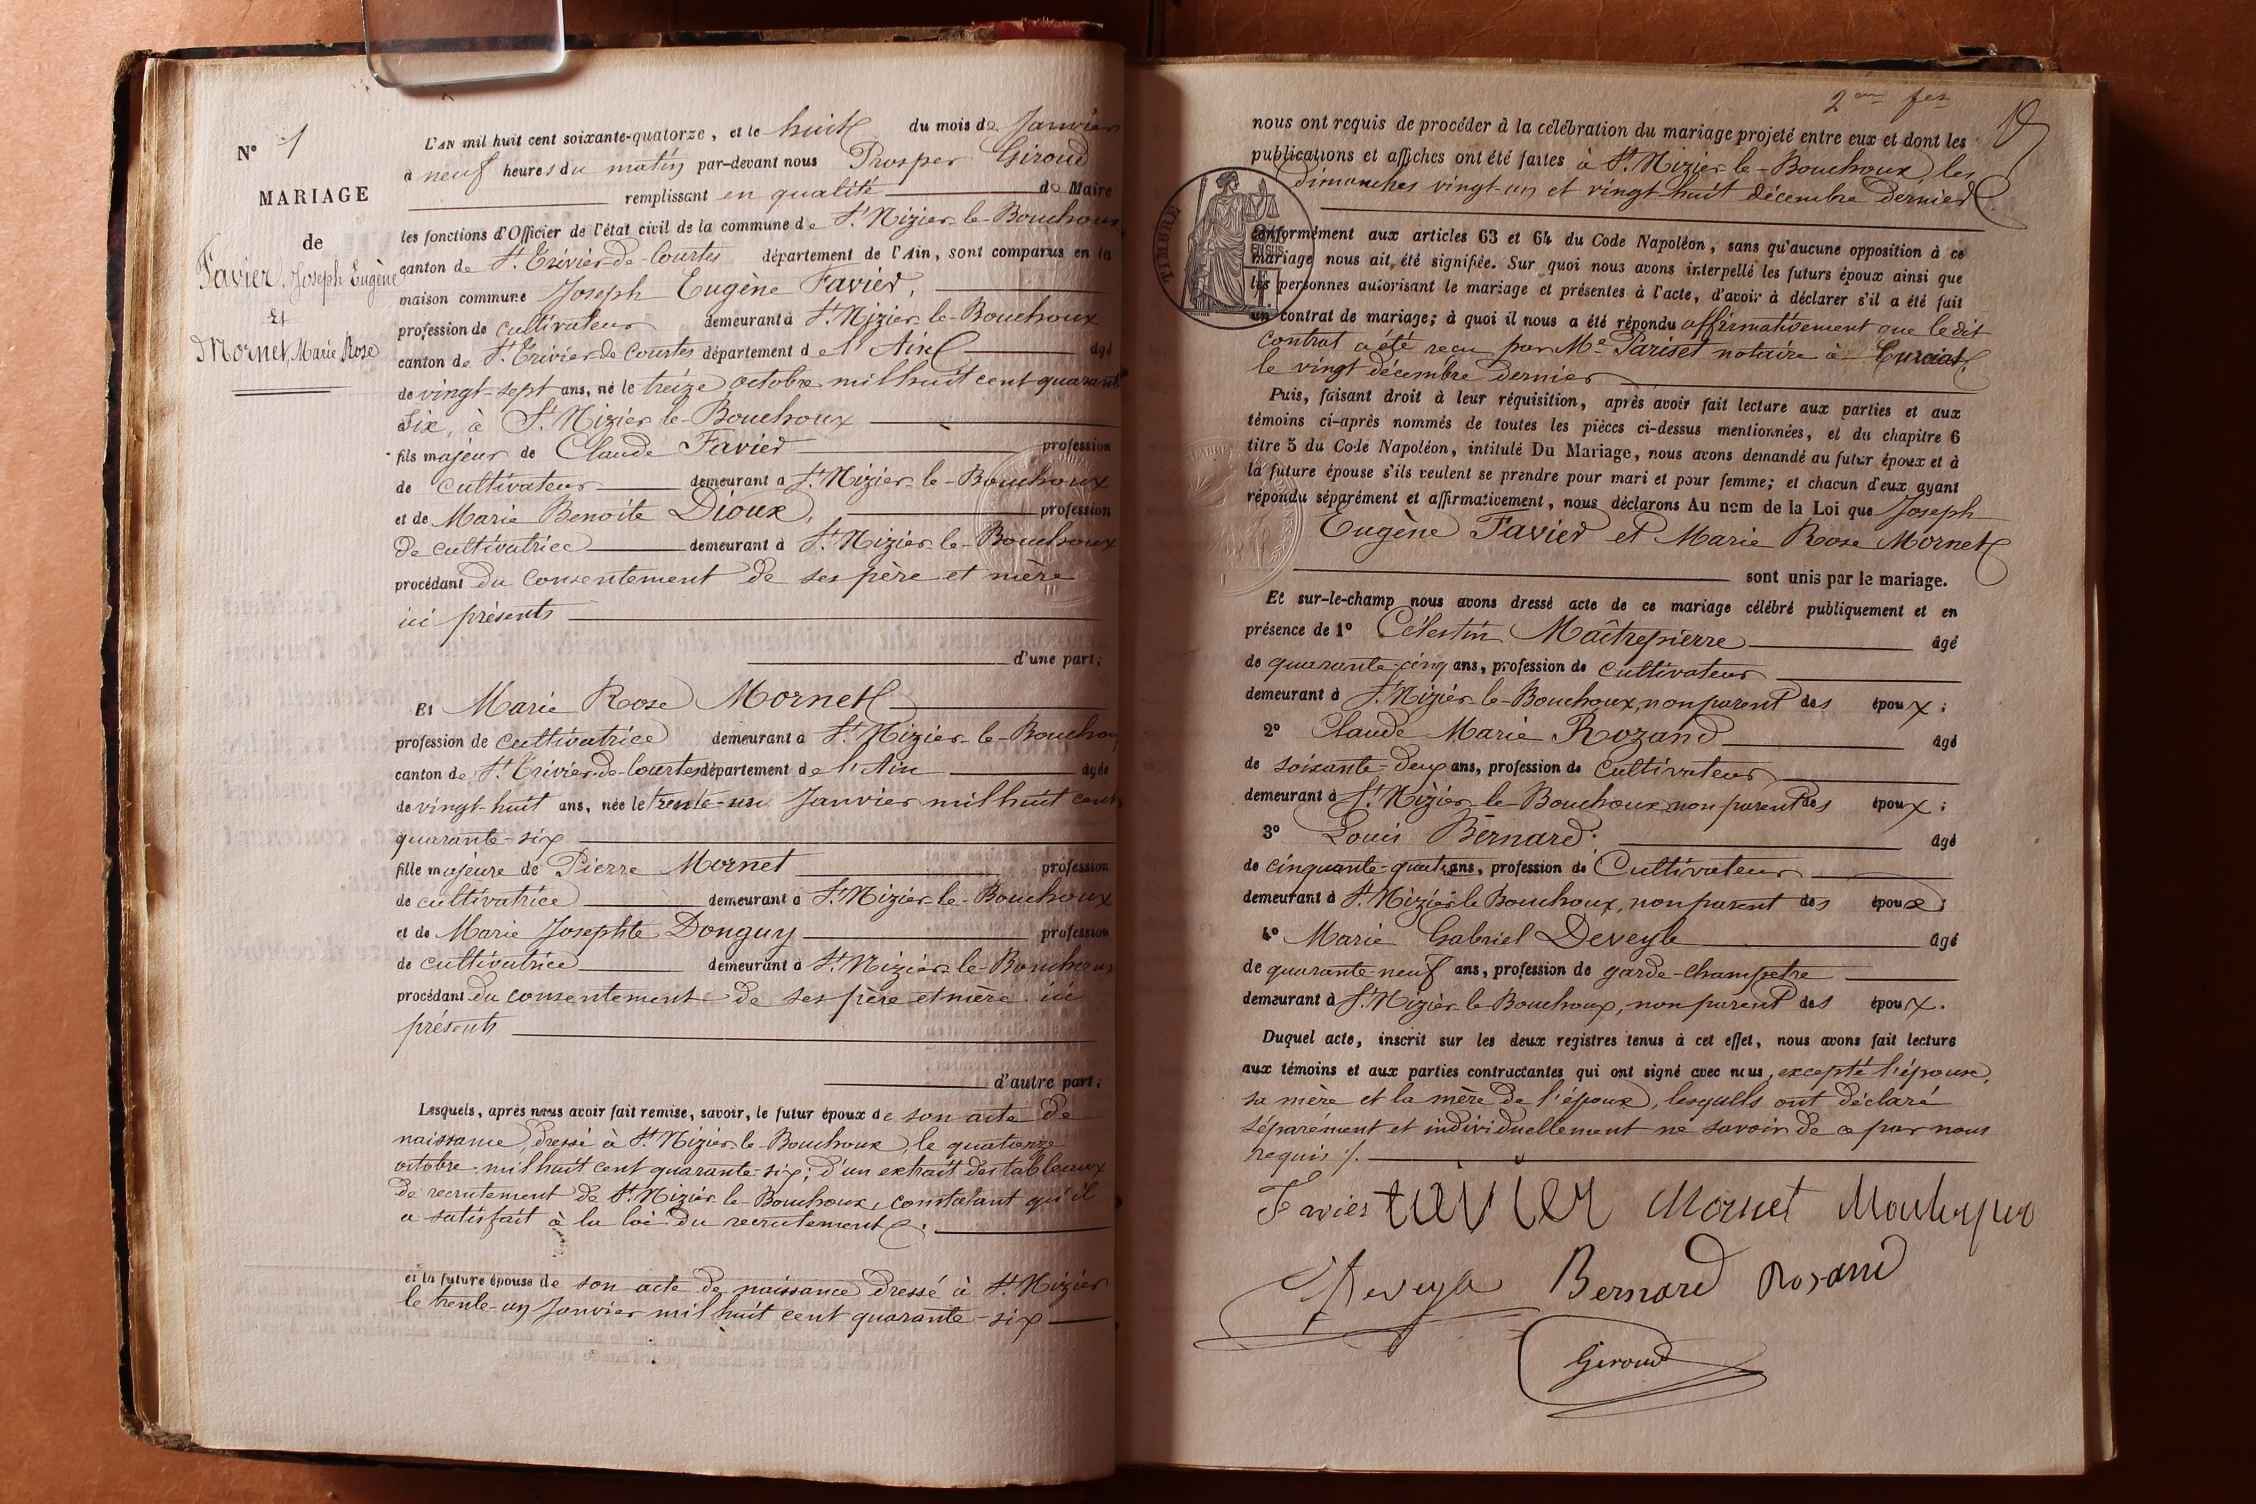 N° 1
MARIAGE
de
Favier, Joseph Eugène
Et
Mornet, Marie Rose
L'AN mil huit cent soixante-quatorze, et le huit du mois de Janvier
à neuf heures du matin par-devant nous Prosper Giroud
remplissant en qualité de Maire
les fonctions d'Officier de l'état civil de la commune de St Nizier-le-Bouchoux
canton de St Trivier-de-Courtes département de l'Ain, sont comparus en la
maison commune Joseph Eugène Favier,
profession de cultivateur demeurant à St Nizier-le-Bouchoux
canton de St Trivier de Courtes département de l'Ain âgé
de vingt-sept ans, né le treize octobre mil huit cent quarante
six, à St Nizier-le-Bouchoux
fils majeur de Claude Favier profession
de cultivateur demeurant à St Nizier-le-Bouchoux
et de Marie Benoite Dioux, profession
de cultivatrice demeurant à St Nizier-le-Bouchoux
procédant du consentement de ses père et mère
ici présents
d'une part;
Et Marie Rose Mornet
profession de cultivatrice demeurant à St Nizier-le-Bouchoux
canton de St Trivier-de-Courtes département de l'Ain âgée
de vingt-huit ans, née le trente-un Janvier mil huit cent
quarante-six
fille majeure de Pierre Mornet profession
de cultivatrice demeurant à St Nizier-le-Bouchoux
et de Marie Josephte Donguy profession
de cultivatrice demeurant à St Nizier-le-Bouchoux
procédant du consentement de ses père et mère ici
présents
d'autre part;
Lesquels, après nous avoir fait remise, savoir, le futur époux de son acte de
naissance, dressé à St Nizier-le-Bouchoux, le quatorze
octobre mil huit cent quarante-six; d'un extrait des tableaux
de recrutement de St Nizier-le-Bouchoux, constatant qu'il
a satisfait à la loi du recrutement.
et la future épouse de son acte de naissance dressé à St Nizier
le trente-un Janvier mil huit cent quarante-six
2me fet
nous ont requis de procéder à la célébration du mariage projeté entre eux et dont les
publications et affiches ont été faites à St Nizier-le-Bouchoux, les
dimanches vingt-un et vingt-huit décembre dernier
TIMBRE
conformément aux articles 63 et 64 du Code Napoléon, sans qu'aucune opposition à ce
mariage nous ait été signifiée. Sur quoi nous avons interpellé les futurs époux ainsi que
les personnes autorisant le mariage et présentes à l'acte, d'avoir à déclarer s'il a été fait
un contrat de mariage; à quoi il nous a été répondu affirmativement que le dit
contrat a été reçu par Me Pariset notaire à Curciat,
le vingt décembre dernier
Puis, faisant droit à leur réquisition, après avoir fait lecture aux parties et aux
témoins ci-après nommés de toutes les pièces ci-dessus mentionnées, et du chapitre 6
titre 5 du Code Napoléon, intitulé Du Mariage, nous avons demandé au futur époux et à
la future épouse s'ils veulent se prendre pour mari et pour femme; et chacun d'eux ayant
répondu séparément et affirmativement, nous déclarons Au nom de la Loi que Joseph
Eugène Favier et Marie Rose Mornet
sont unis par le mariage.
Et sur-le-champ nous avons dressé acte de ce mariage célébré publiquement et en
présence de 1° Célestin Maîtrepierre âgé
de quarante-cinq ans, profession de cultivateur
demeurant à St Nizier-le-Bouchoux, non parent des époux;
2° Claude Marie Rozand âgé
de soixante-deux ans, profession de cultivateur
demeurant à St Nizier-le-Bouchoux non parent des époux;
3° Louis Bernard. âgé
de cinquante-quatre ans, profession de Cultivateur
demeurant à St Nizier-le Bouchoux, non parent des époux;
4° Marie Gabriel Deveyle âgé
de quarante neuf ans, profession de garde-champêtre
demeurant à St Nizier-le-Bouchoux, non parent des époux.
Duquel acte, inscrit sur les deux registres tenus à cet effet, nous avons fait lecture
aux témoins et aux parties contractantes qui ont signé avec nous, excepté l'épouse,
sa mère et la mère de l'époux, lesquels ont déclaré
séparément et individuellement ne savoir de ce par nous
requis /.
Favier favier Mornet
Deveyle Bernard Rosand
Giroud